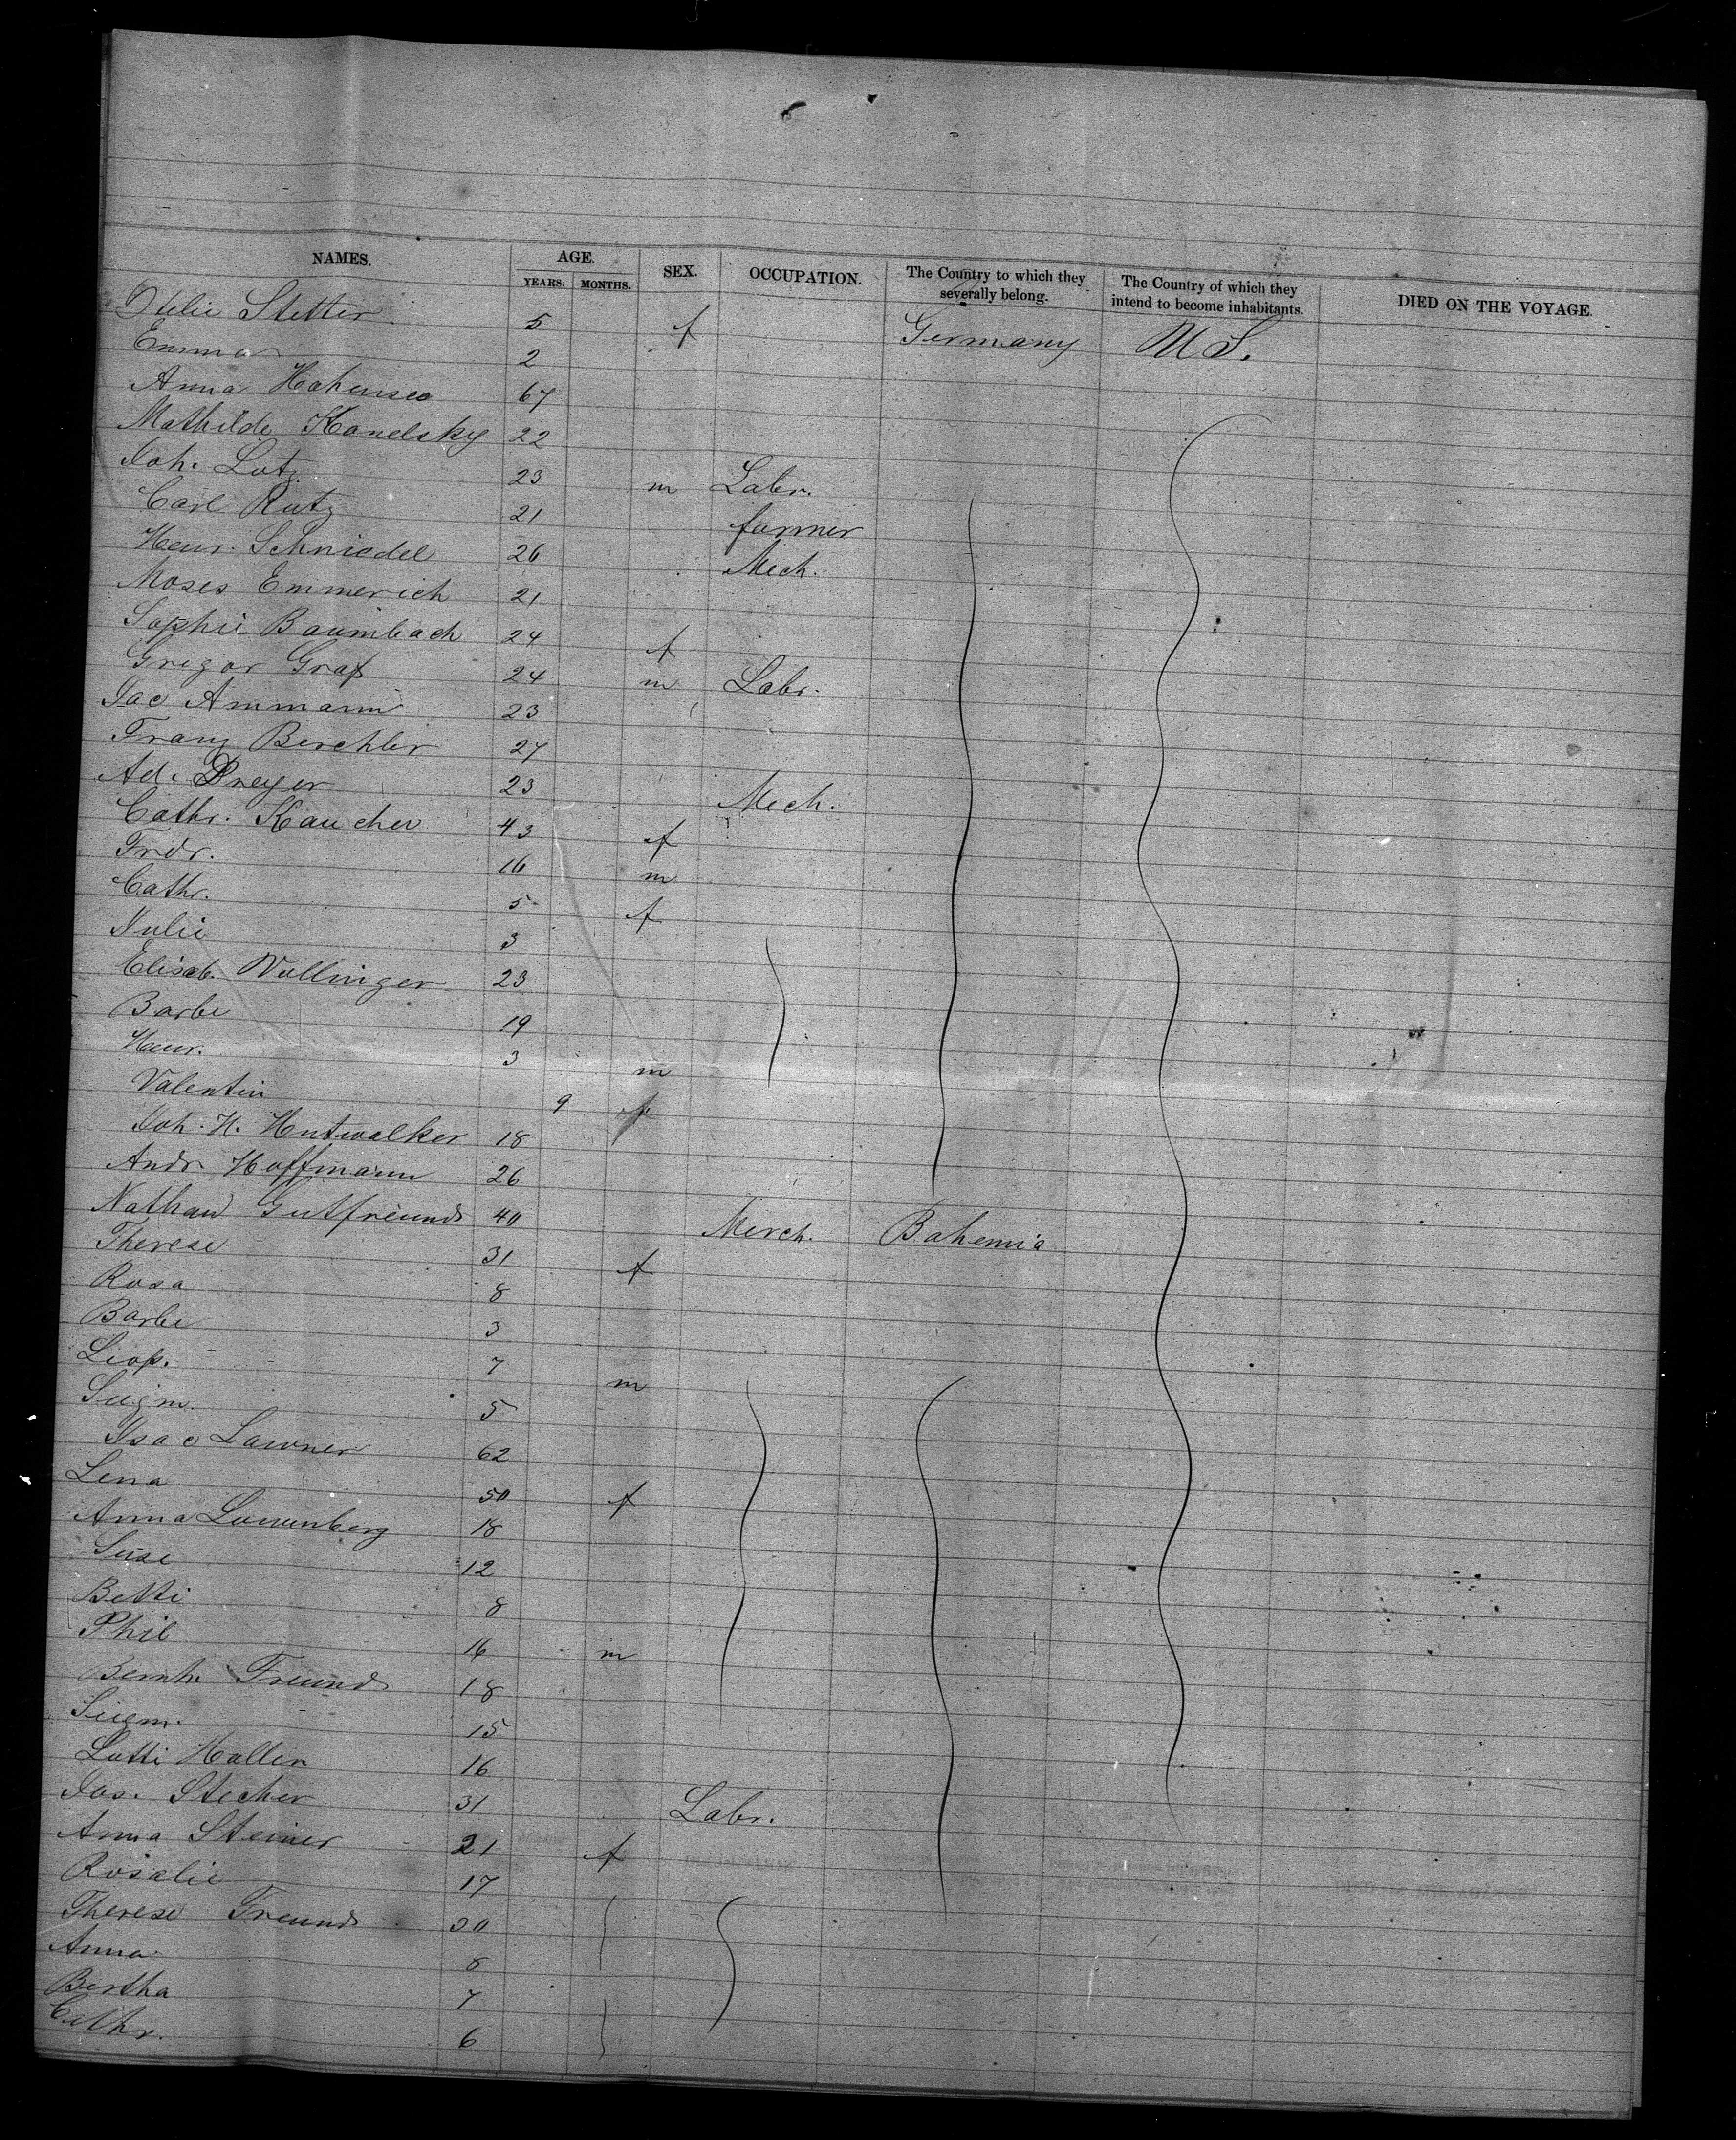 NAMES. AGE. SEX. OCCUPATION. The Country to which they severally belong. The Country of which they intend to become inhabitants. DIED ON THE VOYAGE.
YEARS. MONTHS.
Julie Stetter 5 f Germany U S.
Emma 2
Anna Hohensee 67
Mathilde Kanelsky 22
Joh. Lutz 23 m Labr.
Carl Rutz 21 farmer
Henr. Schniedel 26 Mech.
Moses Emmerich 21
Sophie Baumbach 24 f
Gregor Graf 24 m Labr.
Jac Ammann 23
Franz Berchler 27
Ad. Dreyer 23 Mech.
Cathr. Kaucher 43 f
Frdr. 16 m
Cathr. 5 f
Julie 3
Elisab. Wollinger 23
Barbe 19
Henr. 3 m
Valentin 9 f
Joh. H. Hutwalker 18
Andr Hoffmann 26
Nathan Gutfreund 40 Merch. Bohemia
Therese 31 f
Rosa 8
Barbe 3
Leop. 7 m
Siegm. 5
Isac Lawner 62
Lena 50 f
Anna Lowenberg 18
Suse 12
Betti 8
Phil 16 m
Bernh. Freund 18
Siegm. 15
Lotti Haller 16
Jos. Stecher 31 Labr.
Anna Steiner 21 f
Rosalie 17
Therese Freund 30
Anna 8
Bertha 7
Cathr. 6